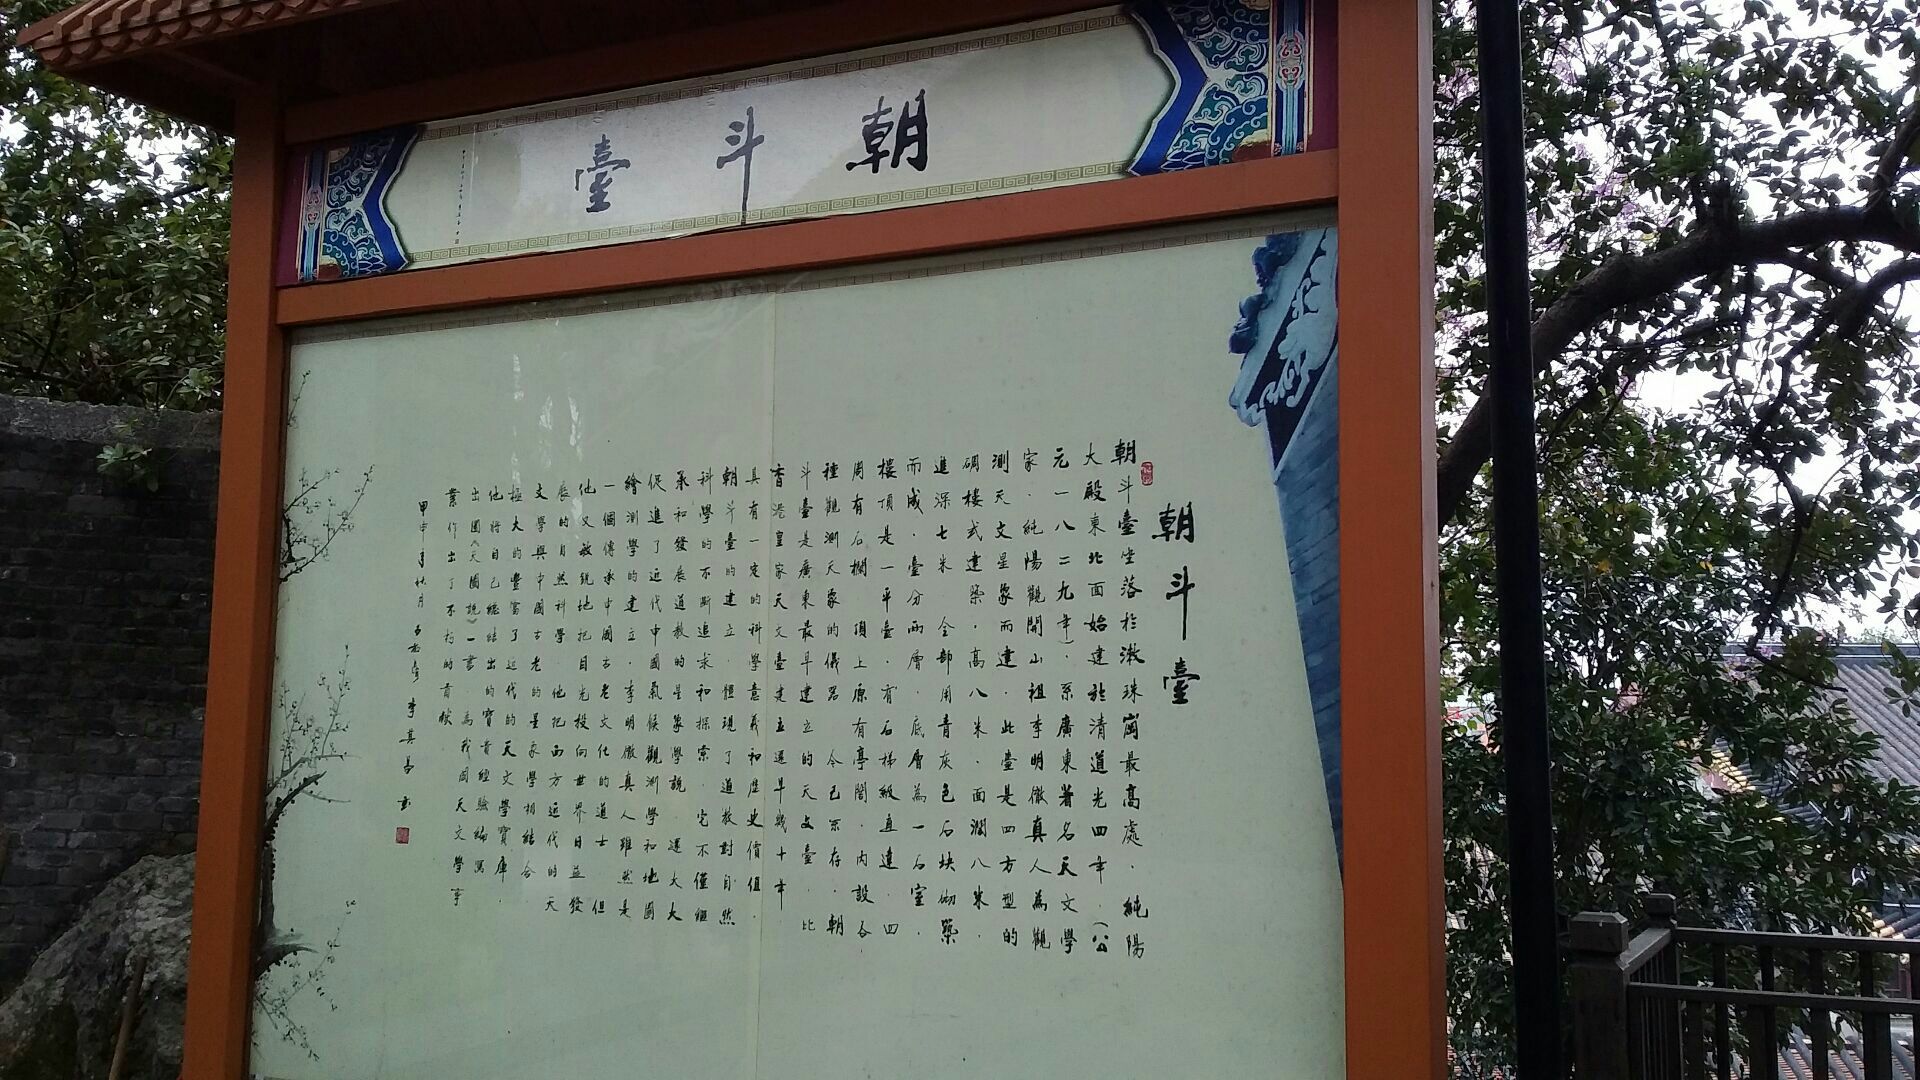 朝斗臺
朝斗臺
朝斗臺坐落於漱珠崗最高處．純陽
大殿東北面始建於清道光四年．（公
元一八二九年）．系廣東著名天文學
家．純陽觀開山祖李明徹真人為觀
測天文星象而建．此臺是四方型的
碉樓式建築．高八米．面濶八米．
進深七米．全部用青灰色石块砌築
而成．臺分兩層．底層為一石室．
樓頂是一平臺．有石梯級直達．四
周有石欄．頂上原有亭閣．内設各
種觀測天象的儀器．今已不存．朝
斗臺是廣東最早建立的天文臺．比
香港皇家天文臺建立還早幾十年
具有一定的科學意義和歷史價值．
朝斗臺的建立．體現了道教對自然
科學的不斷追求和探索．它不僅繼
承和發展道教的星象學說．還大大
促進了近代中國氣候觀測學和地圖
繪測學的建立．李明徹真人雖然是
一個傳承中國古老文化的道士．但
他又敏銳地把目光投向世界日益發
展的自然科學．他把西方近代的天
文學與中國古老的星象學相結合
極大的豐富了近代的天文學寶庫．
他將自己總結出的寶貴經驗編寫
出圜《天圖說》一書．為我国天文學事
業作出了不朽的貢献．
甲申年秋月